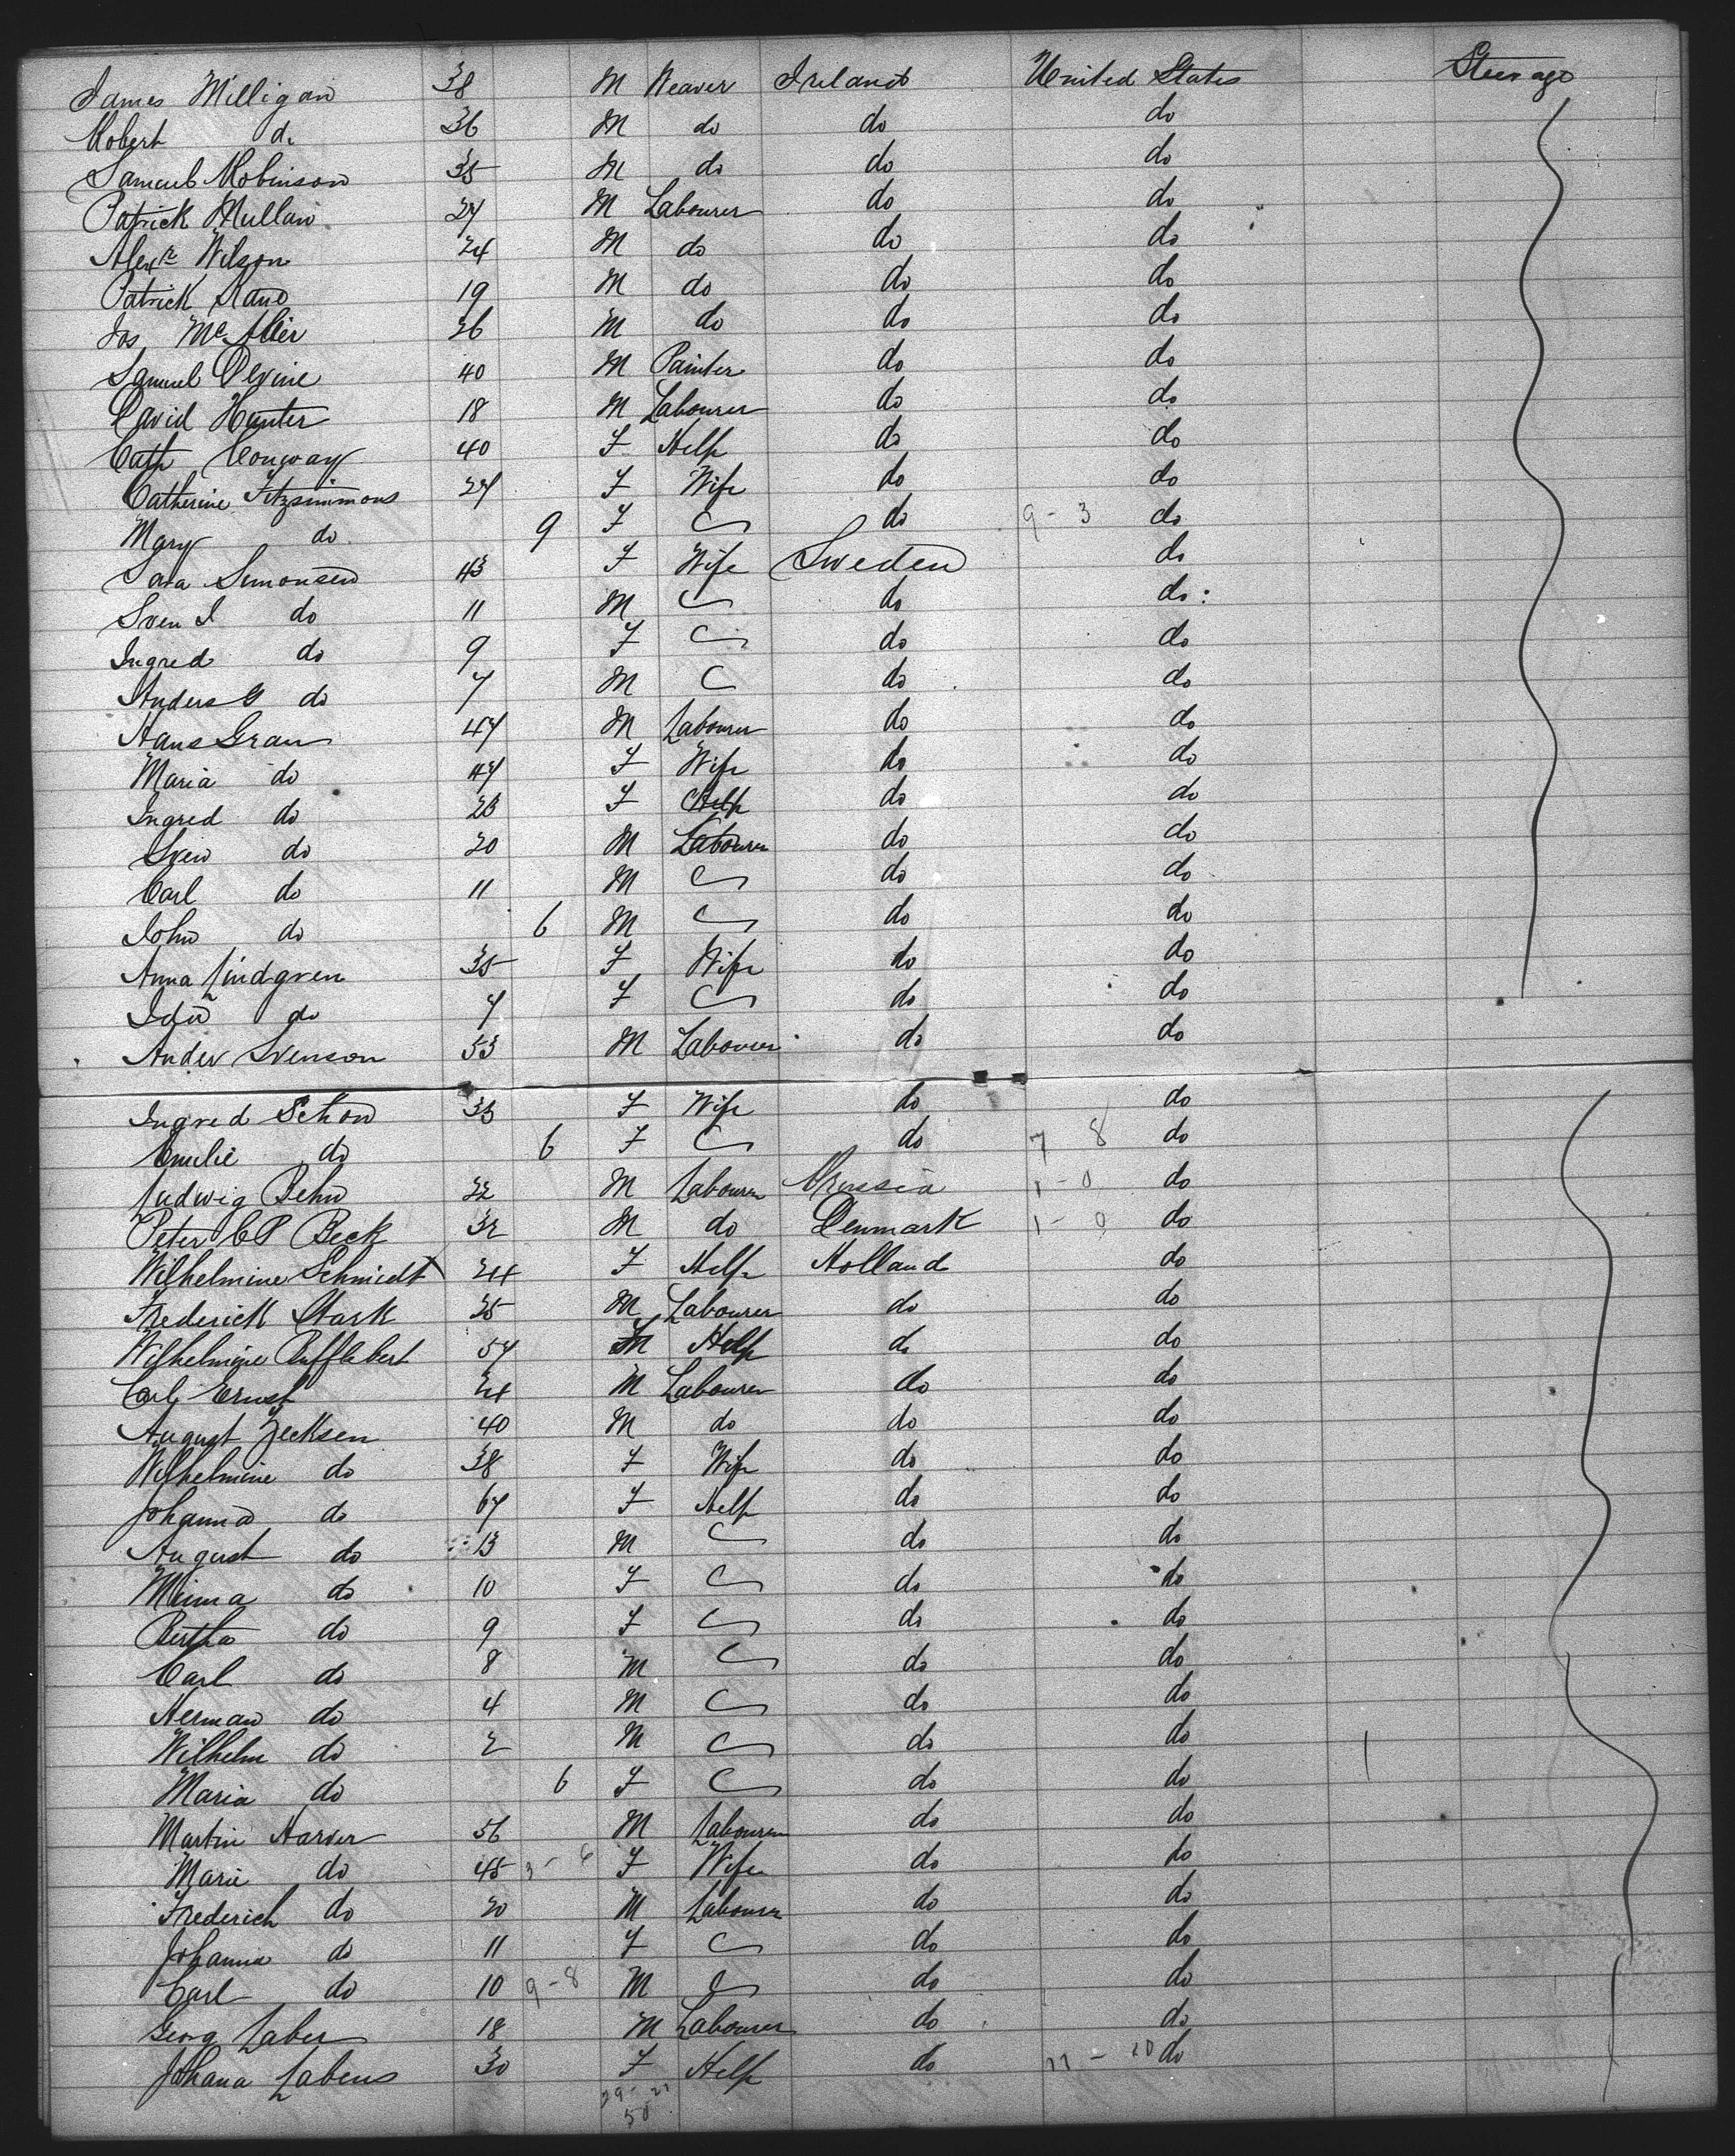 James Milligan 38 M Weaver Ireland United States Steerage
Robert do 36 M do do do
Samuel Robinson 35 M do do do
Patrick Mullan 27 M Labourer do do
Alexr Wilson 24 M do do do
Patrick Kane 19 M do do do
Jos McAleer 26 M do do do
Samuel Devine 40 M Painter do do
David Hunter 18 M Labourer do do
Cath Conway 40 F Help do do
Catherine Fitzsimmons 27 F Wife do do
Mary do 9 F do 9 - 3 do
Simonsen 43 F Wife Sweden do
Sven I do 11 M do do
Ingred do 9 F do do
Anders G do 7 M do do
Hans Gran 47 M Labourer do do
Maria do 47 F Wife do do
Ingred do 23 F Help do do
Sven do 20 M Labourer do do
Carl do 11 M do do
John do 6 M do do
Anna Lindgren 35 F Wife do do
Ida do 7 F do do
Ander Svenson 53 M Labourer do do
Ingred Schon 33 F Wife do do
Emilie do 6 F do 7 8 do
Ludwig Behn 22 M Labourer Prussia 1 - 0 do
Peter C P Beck 32 M do Denmark 1 - 0 do
Wilhelmine Schmidt 24 F Help Holland do
Frederick Stark 35 M Labourer do do
Wilhelmine 57 F Help do do
Carl Ernst 24 M Labourer do do
August Zecksen 40 M do do do
Wilhelmine do 38 F Wife do do
Johanna do 67 F Help do do
August do 13 M do do
Minna do 10 F do do
Bertha do 9 F do do
Carl do 8 M do do
Herman do 4 M do do
Wilhelm do 2 M do do
Maria do 6 F do do
Martin Harver 56 M Labourer do do
Marie do 45 3 - 6 F Wife do do
Frederich do 20 M Labourer do do
Johanna do 11 F do do
Carl do 10 9 - 8 M do do
Georg Laber 18 M Labourer do do
Johana Labens 30 F Help do 11 - 10 do
29 - 21
50